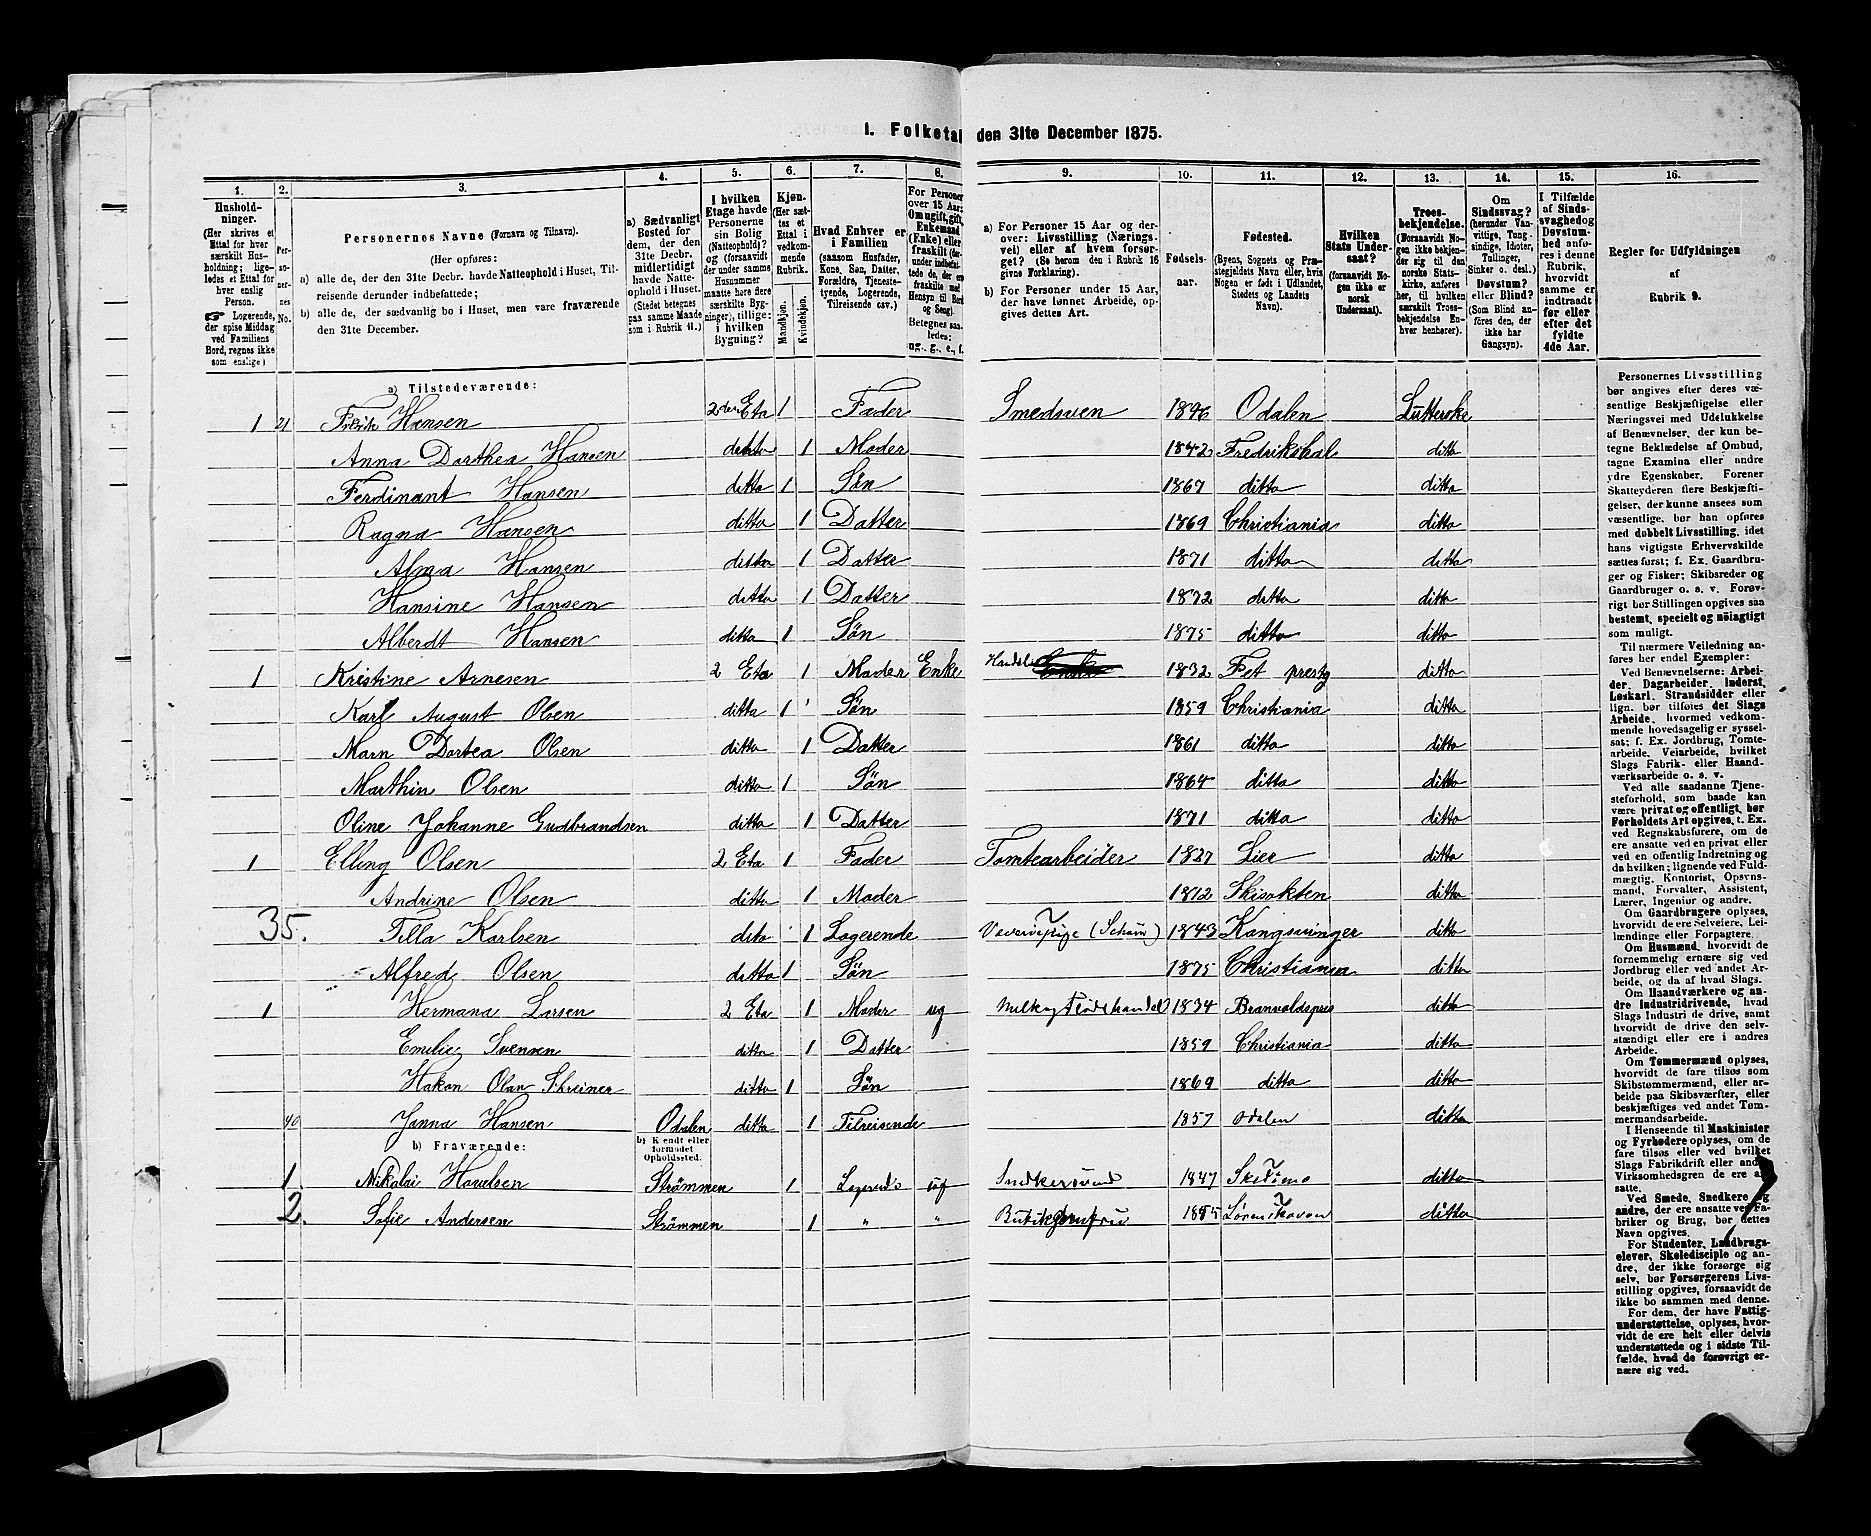 1. Folketal den 31te December 1875.
1. 2. 3. 4. 5. 6. 7. 8. 9. 10. 11. 12. 13. 14. 15. 16.
Hushold-
ninger.
(Her skrives et
Ettal for hver
særskilt Hus-
holdning; lige-
ledes et Ettal for
hver enslig
Person.
☞ Logerende,
der spise Middag
ved Familiens
Bord, regnes ikke
som enslige.)
Per-
so-
ner-
nes
No.
Personernes Navne (Fornavn og Tilnavn).
(Her opføres:
a) alle de, der den 31te Decbr. havde Natteophold i Huset, Til-
reisende derunder indbefattede;
b) alle de, der sædvanlig bo i Huset, men vare fraværende
den 31te December.
a) Sædvanligt
Bosted for
dem, der den
31te Decbr.
midlertidigt
havde Natte-
ophold i Huset.
(Stedet betegnes
paa samme Maade
som i Rubrik 11.)
I hvilken
Etage havde
Personerne
sin Bolig
(Natteophold)?
og (forsaavidt
der under samme
Husnummer
maatte høre flere
særskilte Byg-
ninger), tillige:
i hvilken
Bygning?
Kjøn.
(Her sæt-
tes et
Ettal i
vedkom-
mende
Rubrik.
Mandkjøn.
Kvindekjøn.
Hvad Enhver er
i Familien
(saasom Husfader,
Kone, Søn, Datter,
Forældre, Tjeneste-
tyende, Logerende,
Tilreisende osv.)
For Personer
over 15 Aar:
Om ugift, gift,
Enkemand
(Enke) eller
fraskilt
Betegnes saa-
ledes:
ug., g., e., f.
a) For Personer 15 Aar og der-
over: Livsstilling (Nærings-
vei) eller af hvem forsør-
get? (Se herom den i Rubrik 16
givne Forklaring).
b) For Personer under 15 Aar,
der have lønnet Arbeide, op-
gives dettes Art.
Fødsels-
aar.
Fødested.
(Byens, Sognets og Præ-
stegjeldets Navn eller, hvis
Nogen er født i Udlandet,
Stedets og Landets
Navn).
Hvilken
Stats Under-
saat?
(forsaavidt No-
gen ikke er
norsk
Undersaat).
Troes-
bekjendelse.
(Forsaavidt No-
gen ikke bekjen-
der sig til den
norske Stats-
kirke, anføres
her, til hvilken
særskilt Troes-
bekjendelse En-
hver henhører).
Om
Sindssvag?
(derunder Van-
vittige, Tung-
sindige, Idioter,
Tullinger,
Sinker o. desl.)
Døvstum?
eller Blind?
(Som Blind an-
føres den, der
ikke har
Gangsyn).
I Tilfælde
af Sinds-
svaghed og
Døvstum-
hed anfø-
res i denne
Rubrik,
hvorvidt
samme er
indtraadt
før eller
efter det
fyldte
4de Aar.
Regler for Udfyldningen
af
Rubrik 9.
a) Tilstedeværende:
1 21 Fredrik Hansen 2den Eta 1 Fader Smedsven 1846 Odalen Lutterske
Anna Dorthea Hansen detto 1 Moder 1842 Fredrikshal ditto
Ferdinant Hansen ditto 1 Søn 1867 ditto ditto
Ragna Hansen ditto 1 Datter 1869 Christiania ditto
Alma Hansen ditto 1 Datter 1871 ditto ditto
Hansine Hansen ditto 1 Datter 1872 ditto ditto
Alberdt Hansen ditto 1 Søn 1875 ditto ditto
1 Kristine Arnesen 2 Eta 1 Moder Enke 1832 Fet prestg ditto
Karl August Olsen ditto 1 Søn 1859 Christiania ditto
Marn Dortea Olsen ditto 1 Datter 1861 ditto ditto
Marthin Olsen ditto 1 Søn 1864 ditto ditto
Oline Johanne Gudbrandsen ditto 1 Datter 1871 ditto ditto
1 Elling Olsen 2 Eta 1 Fader Tomtearbeider 1827 Lier ditto
Andrine Olsen ditto 1 Moder 1812 ditto
35. Tilla Karlsen dito 1 Logerende 1843 Kongsvinger ditto
Alfred Olsen ditto 1 Søn 1875 Christiania ditto
1 Hermana Larsen 2 Eta 1 Moder ug Melk og Flødehandel 1834 ditto
Emilie Svensen ditto 1 Datter 1859 Christiania ditto
Hakon Olan Skreiner ditto 1 Søn 1869 ditto ditto
40 Janna Hansen Odalen ditto 1 Tilreisende 1857 Odalen ditto
b) Fraværende:
b) Kjendt eller
formodet
Opholdsted.
1. Nikolai Havelsen Strømmen 1 Logerende ug Snedkersvend 1847 Skedsmo ditto
2. Sofie Andersen Strømmen 1 " " 1855 Lørenskoven ditto
Personernes Livsstilling
bør angives efter deres væ-
sentlige Beskjæftigelse eller
Næringsvei med Udelukkelse
af Benævnelser, der kun be-
tegne Beklædelse af Ombud,
tagne Examina eller andre
ydre Egenskaber. Forener
Skatteyderen flere Beskjæfti-
gelser, der kunne ansees som
væsentlige, bør han opføres
med dobbelt Livsstilling, idet
hans vigtigste Erhvervskilde
sættes først; f. Ex. Gaardbru-
ger og Fisker; Skibsreder og
Gaardbruger o. s. v. Forøv-
rigt bør Stillingen opgives saa
bestemt, specielt og nöiagtigt
som muligt.
Til nærmere Veiledning an-
føres her endel Exempler:
Ved Benævnelserne: Arbei-
der, Dagarbeider, Inderst,
Løskarl, Strandsidder eller
lign. bør tilføies det Slags
Arbeide, hvormed vedkom-
mende hovedsagelig er syssel-
sat; f. Ex. Jordbrug, Tomte-
arbeide, Veiarbeide, hvilket
Slags Fabrik- eller Haand-
værksarbeide o. s. v.
Ved alle saadanne Tjene-
steforhold, som baade kan
være privat og offentligt, bør
Forholdets Art opgives, t. Ex.
ved Regnskabsførere, om de
ere ansatte ved en privat eller
ved en offentlig Indretning og
da hvilken; lignende ved Fuld-
mægtig, Kontorist, Opsyns-
mand, Forvalter, Assistent,
Lærer, Ingeniør og andre.
Om Gaardbrugere oplyses,
hvorvidt de ere Selveiere, Lei-
lændinge eller Forpagtere.
Om Husmænd, hvorvidt de
fornemmelig ernære sig ved
Jordbrug eller ved andet Ar-
beide, og da af hvad Slags.
Om Haandværkere og an-
dre Industridrivende, hvad
Slags Industri de drive, samt
hvorvidt de drive den selv-
stændigt eller ere i andres
Arbeide.
Om Tømmermænd oplyses,
hvorvidt de fare tilsøs som
Skibstømmermænd, eller ar-
beide paa Skibsværfter, eller
beskjæftiges ved andet Tøm-
mermandsarbeide.
I Henseende til Maskinister
og Fyrbødere oplyses, om de
fare tilsøs eller ved hvilket
Slags Fabrikdrift eller anden
Virksomhedsgren de ere an-
satte.
Ved Smede, Snedkere og
andre, der ere ansatte ved Fa-
briker og Brug, bør dettes
Navn opgives.
For Studenter, Landbrugs-
elever, Skoledisciple og an-
dre, der ikke forsørge sig
selv, bør Forsørgerens Livs-
stilling opgives, forsaavidt de
ikke bo sammen med denne.
For dem, der have Fattig-
understøttelse, oplyses, hvor-
vidt de ere helt eller delvis
understøttede og i sidste Til-
fælde, hvad de forøvrigt er-
nære sig ved.